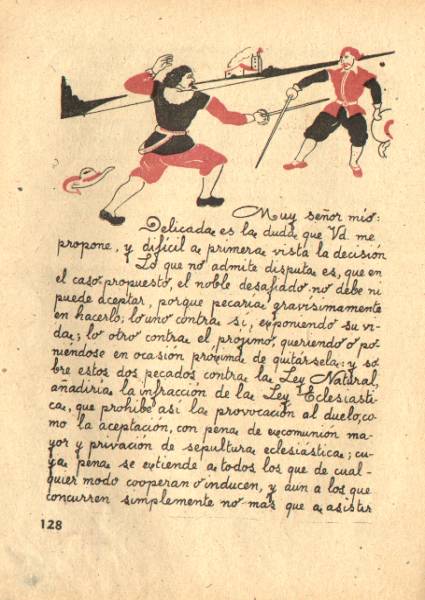 Muy señor mío:
Delicada es la duda que Vd. me
propone, y difícil a primera vista la decisión
Lo que no admite disputa es, que en
el caso propuesto, el noble desafiado no debe ni
puede aceptar, porque pecaría gravísimamente
en hacerlo; lo uno contra sí, exponiendo su vi-
da; lo otro contra el prójimo, queriendo o po-
niéndose en ocasión próxima de quitársela: y so-
bre estos dos pecados contra la Ley Natural,
añadiría la infracción de la Ley Eclesiásti-
ca, que prohibe así la provocación al duelo, co-
mo la aceptación, con pena de excomunión ma-
yor y privación de sepultura eclesiástica; cu-
ya pena se extiende a todos los que de cual-
quier modo cooperan o inducen, y aun a los que
concurren simplemente no más que a asistir
128